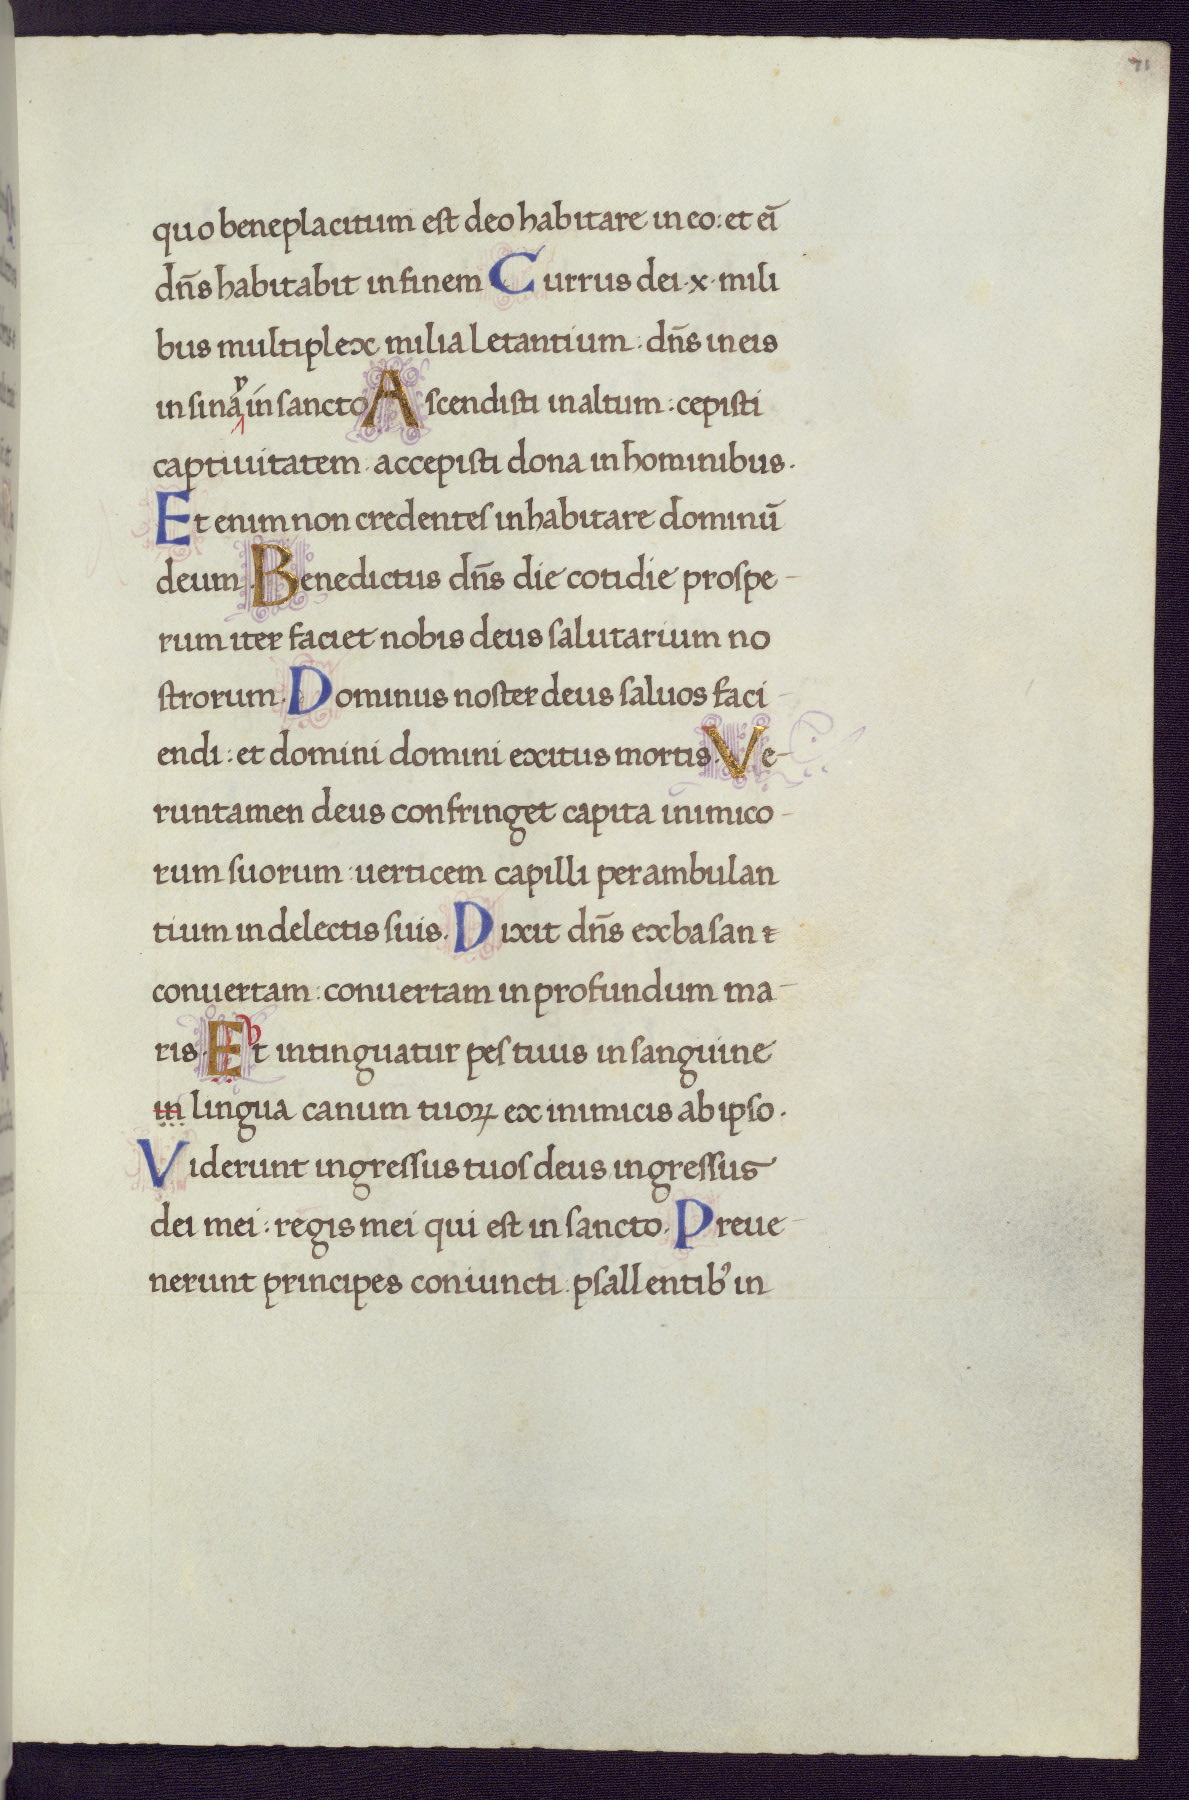 71
quo beneplacitum est deo habitare in eo : et eī
dn̄s habitabit in finem Currus dei · x · mili
bus multiplex milia letantium : dn̄s in eis
in sina in sancto Ascendisti in altum : cepisti
captiuitatem · accepisti dona in hominibus ·
Et enim non credentes inhabitare dominū
deum · Benedictus dn̄s die cotidie prospe-
rum iter faciet nobis deus salutarium no
strorum · Dominus noster deus saluos faci-
endi : et domini domini exitus mortis · Ve-
runtamen deus confringet capita inimico-
rum suorum : uerticem capilli perambulan
tium in delectis suis · Dixit dn̄s ex basan
conuertam : conuertam in profundum ma-
ris · Et intinguatur pes tuus in sanguine
in lingua canum tuoꝝ ex inimicis ab ipso ·
Viderunt ingressus tuos deus ingressus
dei mei : regis mei qui est in sancto · Preue-
nerunt principes coniuncti psallentib' in